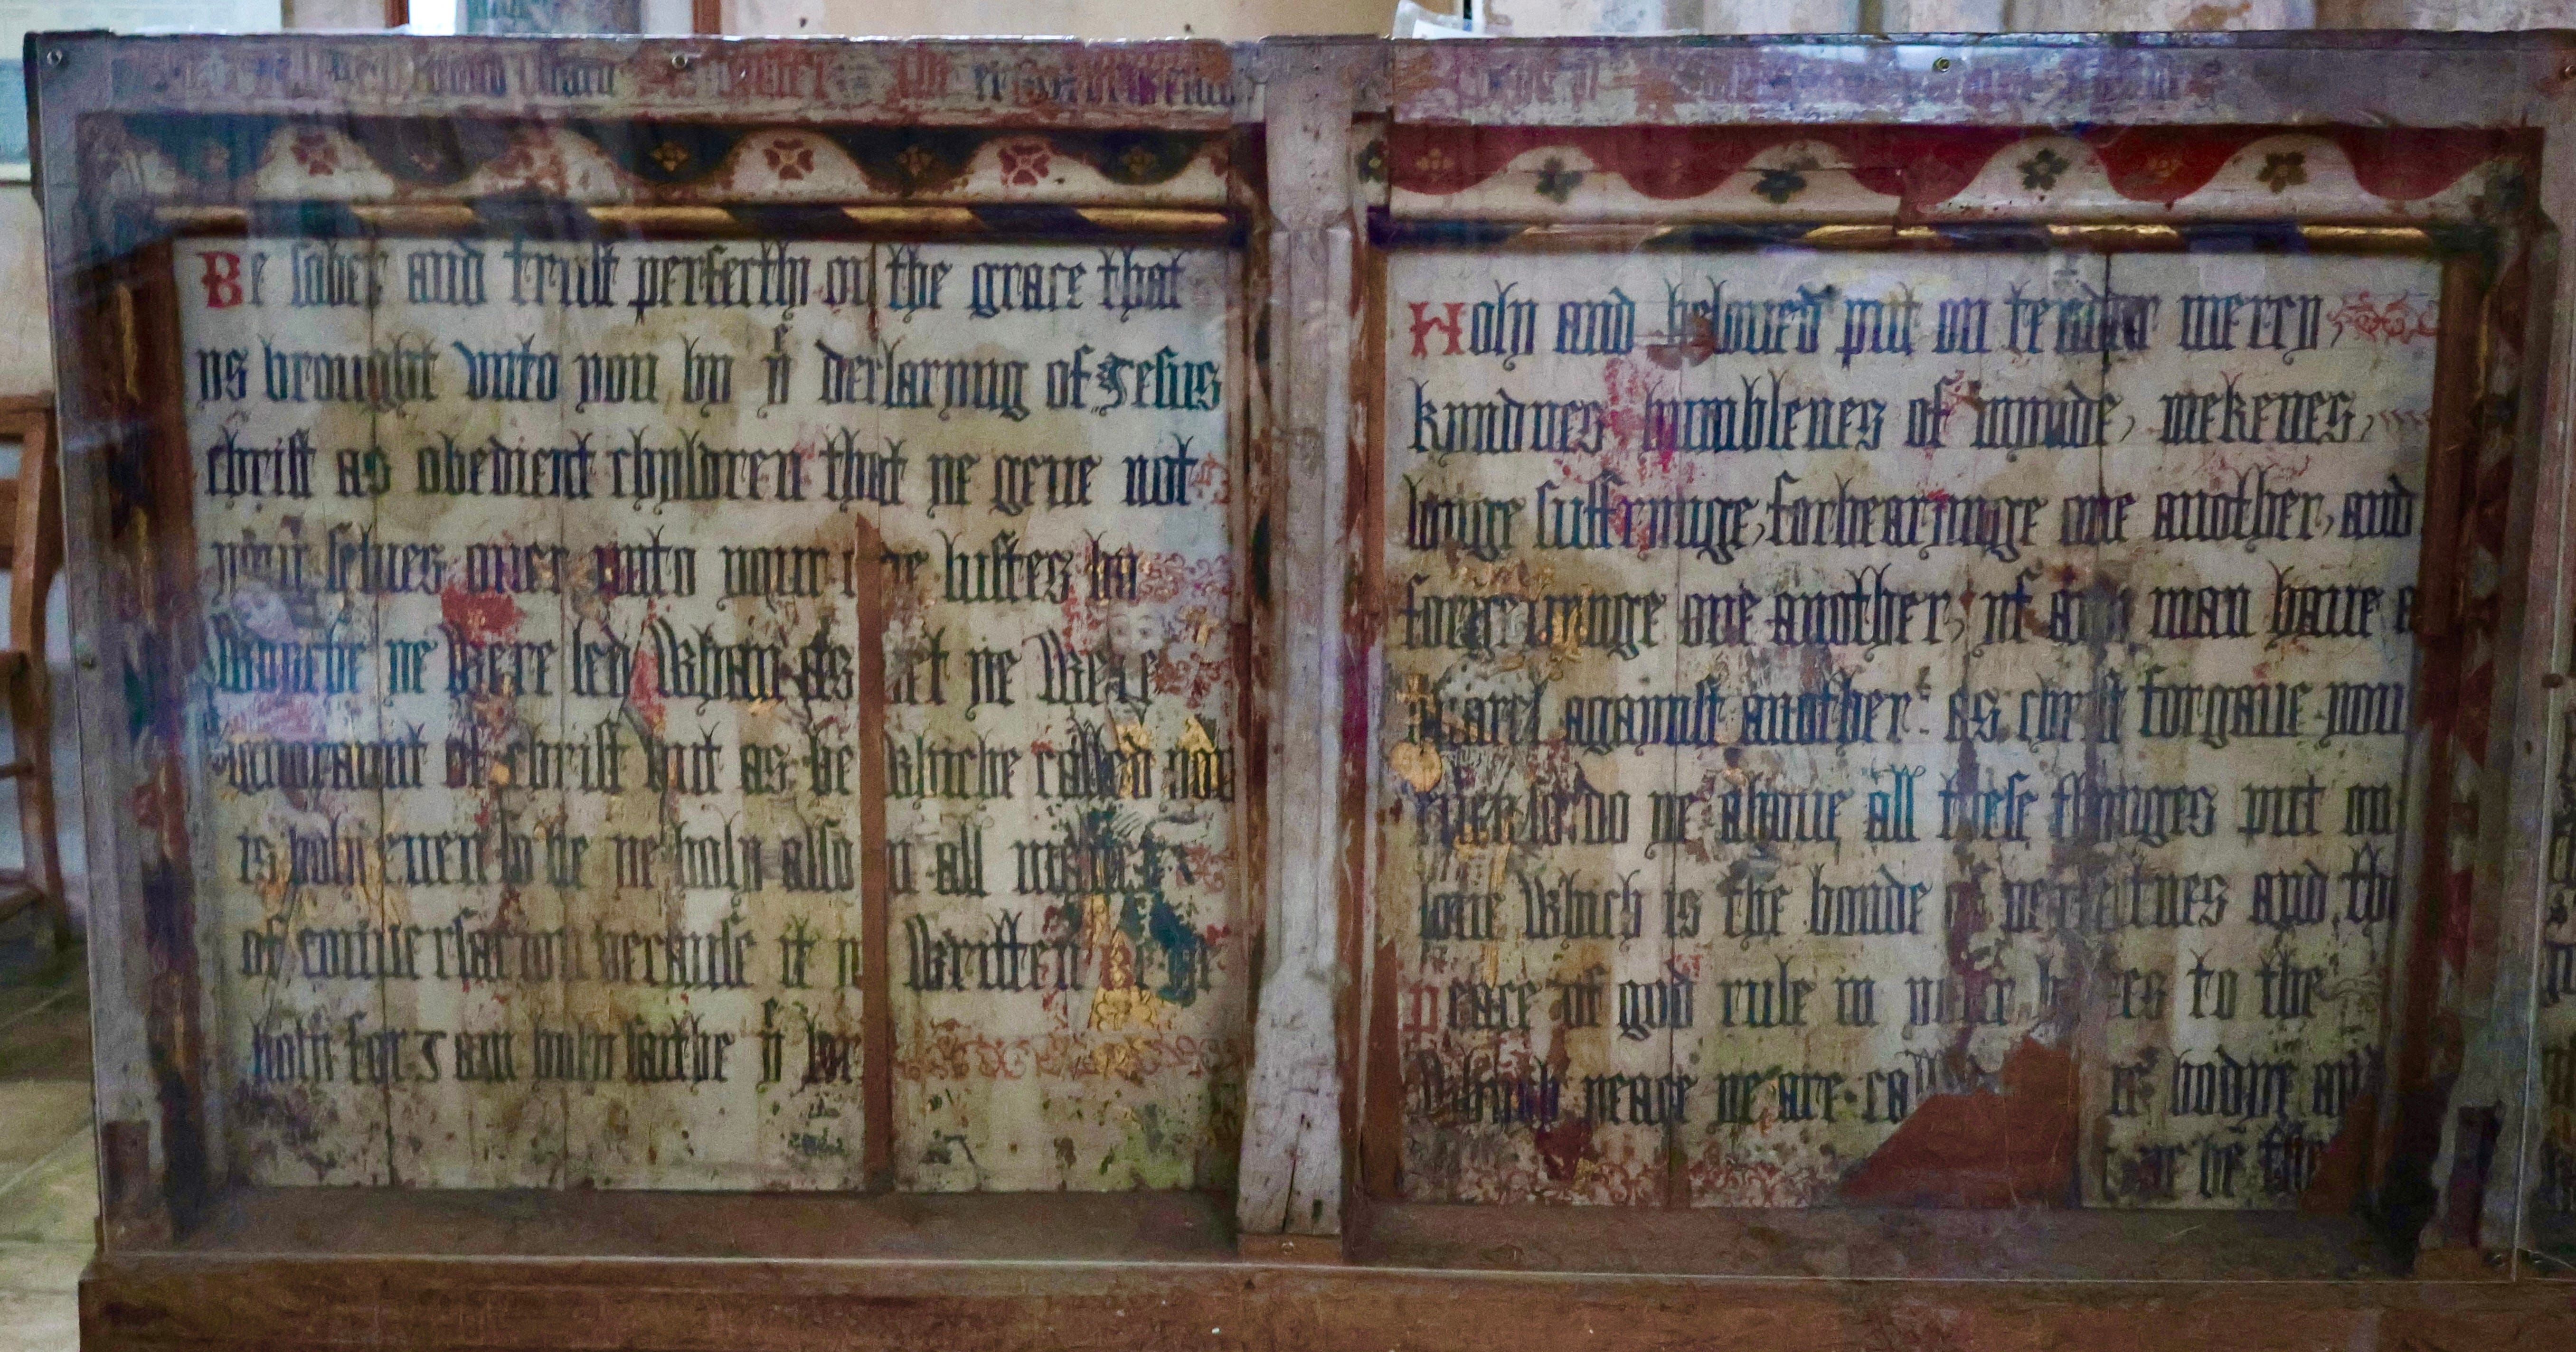 Be sober and trust perfectly on the grace that
ys brought vnto you by yͤ declaryng of Jesus
christ as obedient chyldren that ye geue not
your selues ouer vnto your lustes by
Whyche ye Were led Whan as yet ye Were
ignoraunt of christ but as he Whiche called you
is holy euen so be ye holy also in all maner
of conuersacion because it ys Written Be ye
holy for I am holy saithe yͤ lor
Holy and beloued put on tender mercy,
kyndnes humblenes of mynde, mekenes,
longe suffrynge, forbearynge one another, and
forgeuynge one another, yf any man haue a
quarel agaynst another: as christ forgaue you
euen so do ye aboue all these thynges put on
loue Which is the bonde of perfectnes and the
peace of god rule in your hertes to the
Which peace ye are cal bodye and